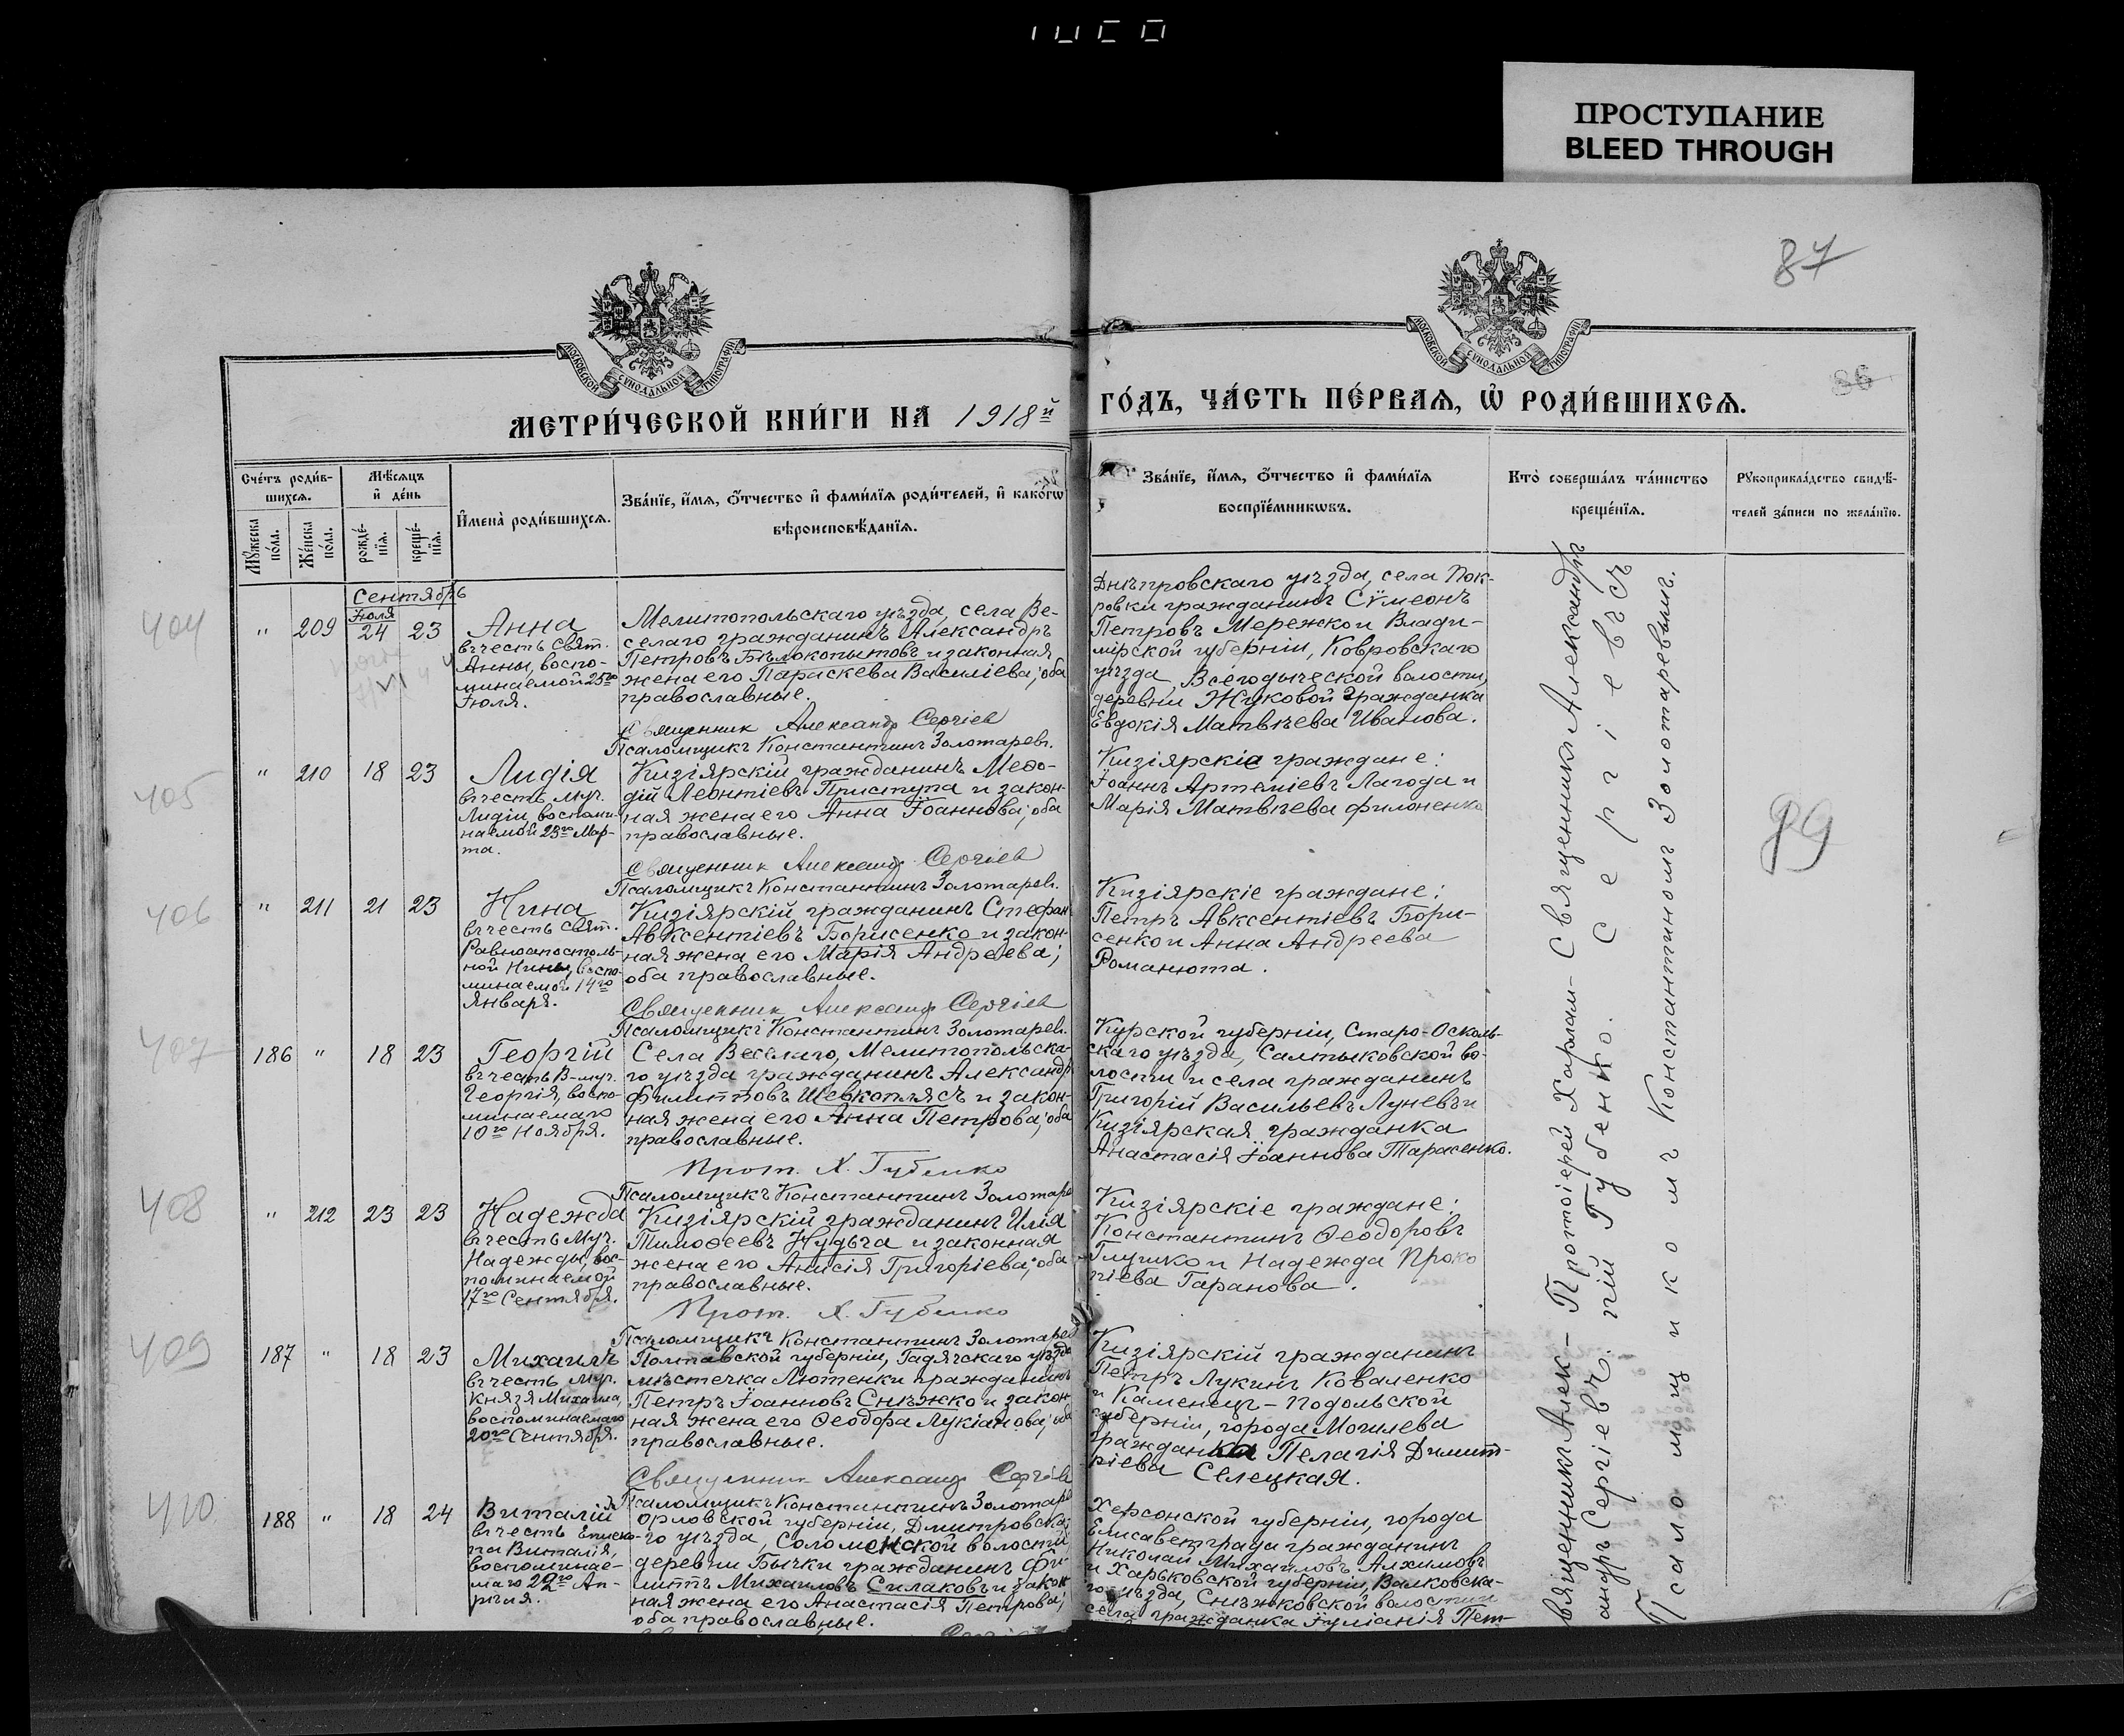 ПРОСТУПАНИЕ
BLEED THROUGH
87
86
МОСКОВСКОЙ СУНОДАЛЬНОЙ ТИПОГРАФІИ
МОСКОВСКОЙ СУНОДАЛЬНОЙ ТИПОГРАФІИ
МЕТРИ́ЧЕСКОЙ КНИ́ГИ НА 1918й
ГО́ДЪ, ЧА́СТЬ ПЕ́РВАѦ, Ѡ РОДИ́ВШИХСѦ.
Сче́тъ роди́в-
шихсѧ.
Мꙋжеска по́ла.
Же́нска по́ла.
Мѣ́сѧцъ
и де́нь
рожде́-
нїѧ.
креще́-
нїѧ.
Имена̀ роди́вшихсѧ.
Зва́нїе, и́мѧ, ѻ́тчество и фами́лїѧ роди́телей, и како́гѡ
вѣроисповѣ́данїѧ.
Зва́нїе, и́мѧ, ѻ́тчество и фами́лїѧ
воспрїе́мникѡвъ.
Кто̀ соверша́лъ та́инство
креще́нїѧ.
Рꙋкоприкла́дство свидѣ́-
телей за́писи по жела́нїю.
Сентябрь
404
" 209 Іюля 24 23
Анна
въ честь Свят.
Анны, воспо-
минаемой 25го
Іюля.
Мелитопольскаго уѣзда, села Ве-
селаго гражданинъ Александръ
Петровъ Бѣлокопытовъ и законная
жена его Параскева Василіева; оба
православные.
Священник Александр Сергіев
Псаломщикъ Константинъ Золотаревъ.
Днѣпровскаго уѣзда, села Пок-
ровки гражданинъ Сѵмеонъ
Петровъ Мережко и Влади-
мірской губерніи, Ковровскаго
уѣзда, Всегодыческой волости,
деревни Жуковой гражданка
Евдокія Матвѣева Иванова.
405
" 210 18 23
Лидія
въ честь муч.
Лидіи, воспоми-
наемой 23го Мар-
та.
Кизіярскій гражданинъ Меѳо-
дій Леонтіевъ Приступа и закон-
ная жена его Анна Іоаннова; оба
православные.
Священник Александр Сергіев
Псаломщикъ Константинъ Золотаревъ.
Кизіярскіе граждане:
Іоаннъ Артеміевъ Лагода и
Марія Матвѣева Филоненко
89
406
" 211 21 23
Нина
въ честь Свят.
Равноапостоль-
ной Нины, воспо-
минаемой 14го
Января.
Кизіярскій гражданинъ Стефан
Авксентіевъ Борисенко и закон-
ная жена его Марія Андреева;
оба православные.
Священник Александр Сергіев
Псаломщикъ Константинъ Золотаревъ.
Кизіярскіе граждане:
Петръ Авксентіевъ Бори-
сенко и Анна Андреева
Романюта.
407
186 " 18 23
Георгій
въ честь В-муч.
Георгія, воспо-
минаемаго
10го Ноября.
Села Веселаго, Мелитопольска-
го уѣзда гражданинъ Александръ
Филипповъ Шевкоплясъ и закон-
ная жена его Анна Петрова; оба
православные.
Прот. Х. Губенко
Псаломщикъ Константинъ Золотаре
Курской губерніи, Старо-Осколь-
скаго уѣзда, Салтыковской во-
лости и села гражданинъ
Григорій Васильевъ Луневъ и
Кизіярская гражданка
Анастасія Іоаннова Тарасенко.
408
" 212 23 23
Надежда
въ честь Муч.
Надежды, вос-
поминаемой
17го Сентября.
Кизіярскій гражданинъ Илія
Тимоѳеевъ Нудьга и законная
жена его Анисія Григоріева; оба
православные.
Прот. Х. Губенко
Псаломщикъ Константинъ Золотарев
Кизіярскіе граждане:
Константинъ Ѳеодоровъ
Глушко и Надежда Проко
піева Гаранова.
409
187 " 18 23
Михаилъ
въ честь Муч.
Князя Михаила,
воспоминаемаго
20го Сентября.
Полтавской губерніи, Гадячскаго уѣзда
мѣстечка Лютенки гражданинъ
Петръ Іоанновъ Снѣжко и закон-
ная жена его Ѳеодора Лукіанова; оба
православные.
Священник Александр Сергіев
Псаломщикъ Константинъ Золотаре
Кизіярскій гражданинъ
Петръ Лукинъ Коваленко
и Каменецъ-Подольской
губерніи, города Могилева
гражданка Пелагія Димит-
ріева Селецкая.
410
188 " 18 24
Виталій
въ честь Еписко-
па Виталія,
воспоминае-
маго 22го Ап-
рѣля.
Орловской губерніи, Дмитровска-
го уѣзда, Соломонской волости
деревни Бычки гражданинъ Фи-
липпъ Михаиловъ Силаковъ и закон
ная жена его Анастасія Петрова;
оба православные.
Херсонской губерніи, города
Елисаветграда гражданинъ
Николай Михаиловъ Алхимовъ
и Харьковской губерніи, Валковска-
го уѣзда, Снѣжковской волости и
села гражданка Іуліанія Пет-
Священникъ Алек- Протоіерей Харлам- Священникъ Александръ
андръ Сергіевъ. пій Губенко. Сергіевъ
Псаломщикомъ Константиномъ Золотаревымъ.